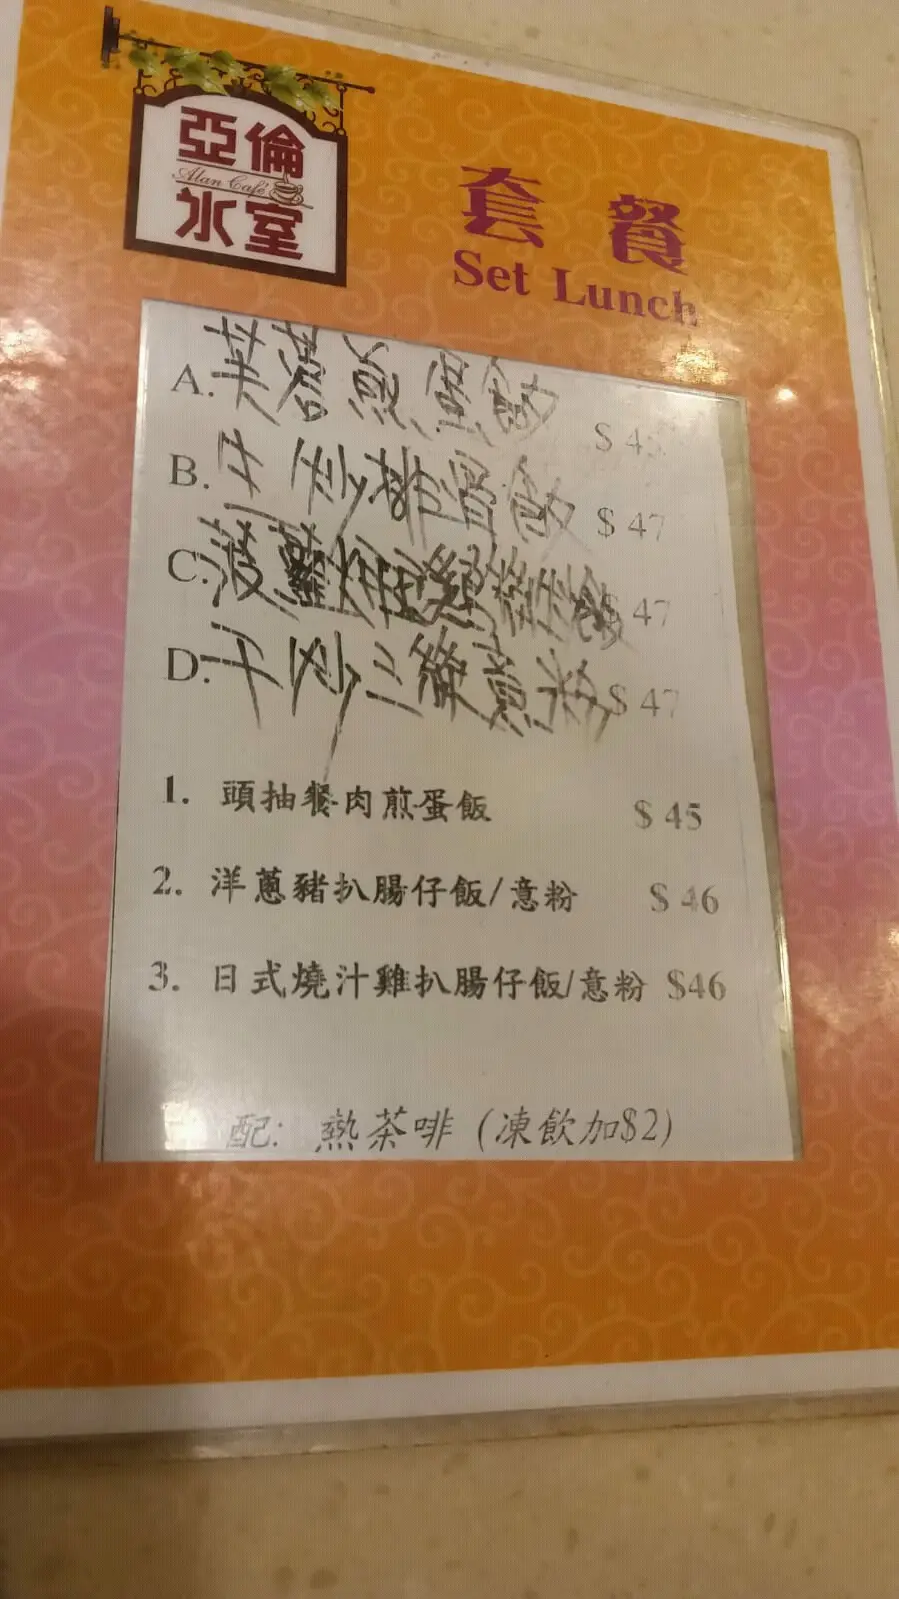 亞倫
Alan Café
冰室
套餐
Set Lunch
A. 芙蓉煎蛋飯 $ 45
B. 干炒排骨飯 $ 47
C. 菠蘿 $ 47
D. 干炒三絲意粉 $ 47
1. 頭抽餐肉煎蛋飯 $ 45
2. 洋蔥豬扒腸仔飯/意粉 $ 46
3. 日式燒汁雞扒腸仔飯/意粉 $46
配: 熱茶啡 (凍飲加$2)